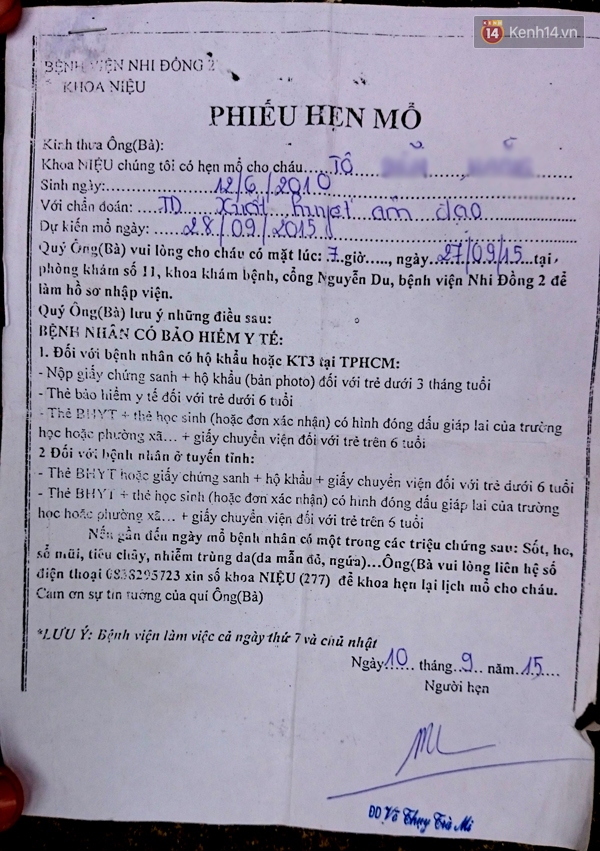 KÊNH 14 Kenh14.vn
BỆNH VIỆN NHI ĐỒNG 2
KHOA NIỆU
PHIẾU HẸN MỔ
Kính thưa Ông(Bà):
Khoa NIỆU chúng tôi có hẹn mổ cho cháu.....TÔ
Sinh ngày:..................12/6/2010
Với chẩn đoán:....TD xuất huyết âm đạo
Dự kiến mổ ngày:.....28/09/2015
Quý Ông(Bà) vui lòng cho cháu có mặt lúc: 7 giờ....., ngày 27/09/15 tại
phòng khám số 11, khoa khám bệnh, cổng Nguyễn Du, bệnh viện Nhi Đồng 2 để
làm hồ sơ nhập viện.
Quý Ông(Bà) lưu ý những điều sau:
BỆNH NHÂN CÓ BẢO HIỂM Y TẾ:
1. Đối với bệnh nhân có hộ khẩu hoặc KT3 tại TPHCM:
- Nộp giấy chứng sanh + hộ khẩu (bản photo) đối với trẻ dưới 3 tháng tuổi
- Thẻ bảo hiểm y tế đối với trẻ dưới 6 tuổi
- Thẻ BHYT + thẻ học sinh (hoặc đơn xác nhận) có hình đóng dấu giáp lai của trường
học hoặc phường xã... + giấy chuyển viện đối với trẻ trên 6 tuổi
2 Đối với bệnh nhân ở tuyến tỉnh:
- Thẻ BHYT hoặc giấy chứng sanh + hộ khẩu + giấy chuyển viện đối với trẻ dưới 6 tuổi
- Thẻ BHYT + thẻ học sinh (hoặc đơn xác nhận) có hình đóng dấu giáp lai của trường
học hoặc phường xã... + giấy chuyển viện đối với trẻ trên 6 tuổi
Nếu gần đến ngày mổ bệnh nhân có một trong các triệu chứng sau: Sốt, ho,
sổ mũi, tiêu chảy, nhiễm trùng da(da mẩn đỏ, ngứa)...Ông(Bà vui lòng liên hệ số
điện thoại 0838295723 xin số khoa NIỆU (277) để khoa hẹn lại lịch mổ cho cháu.
Cảm ơn sự tin tưởng của quí Ông(Bà)
*LƯU Ý: Bệnh viện làm việc cả ngày thứ 7 và chủ nhật
Ngày 10 tháng 9 năm 15
Người hẹn
ĐD Võ Thụy Trà Mi